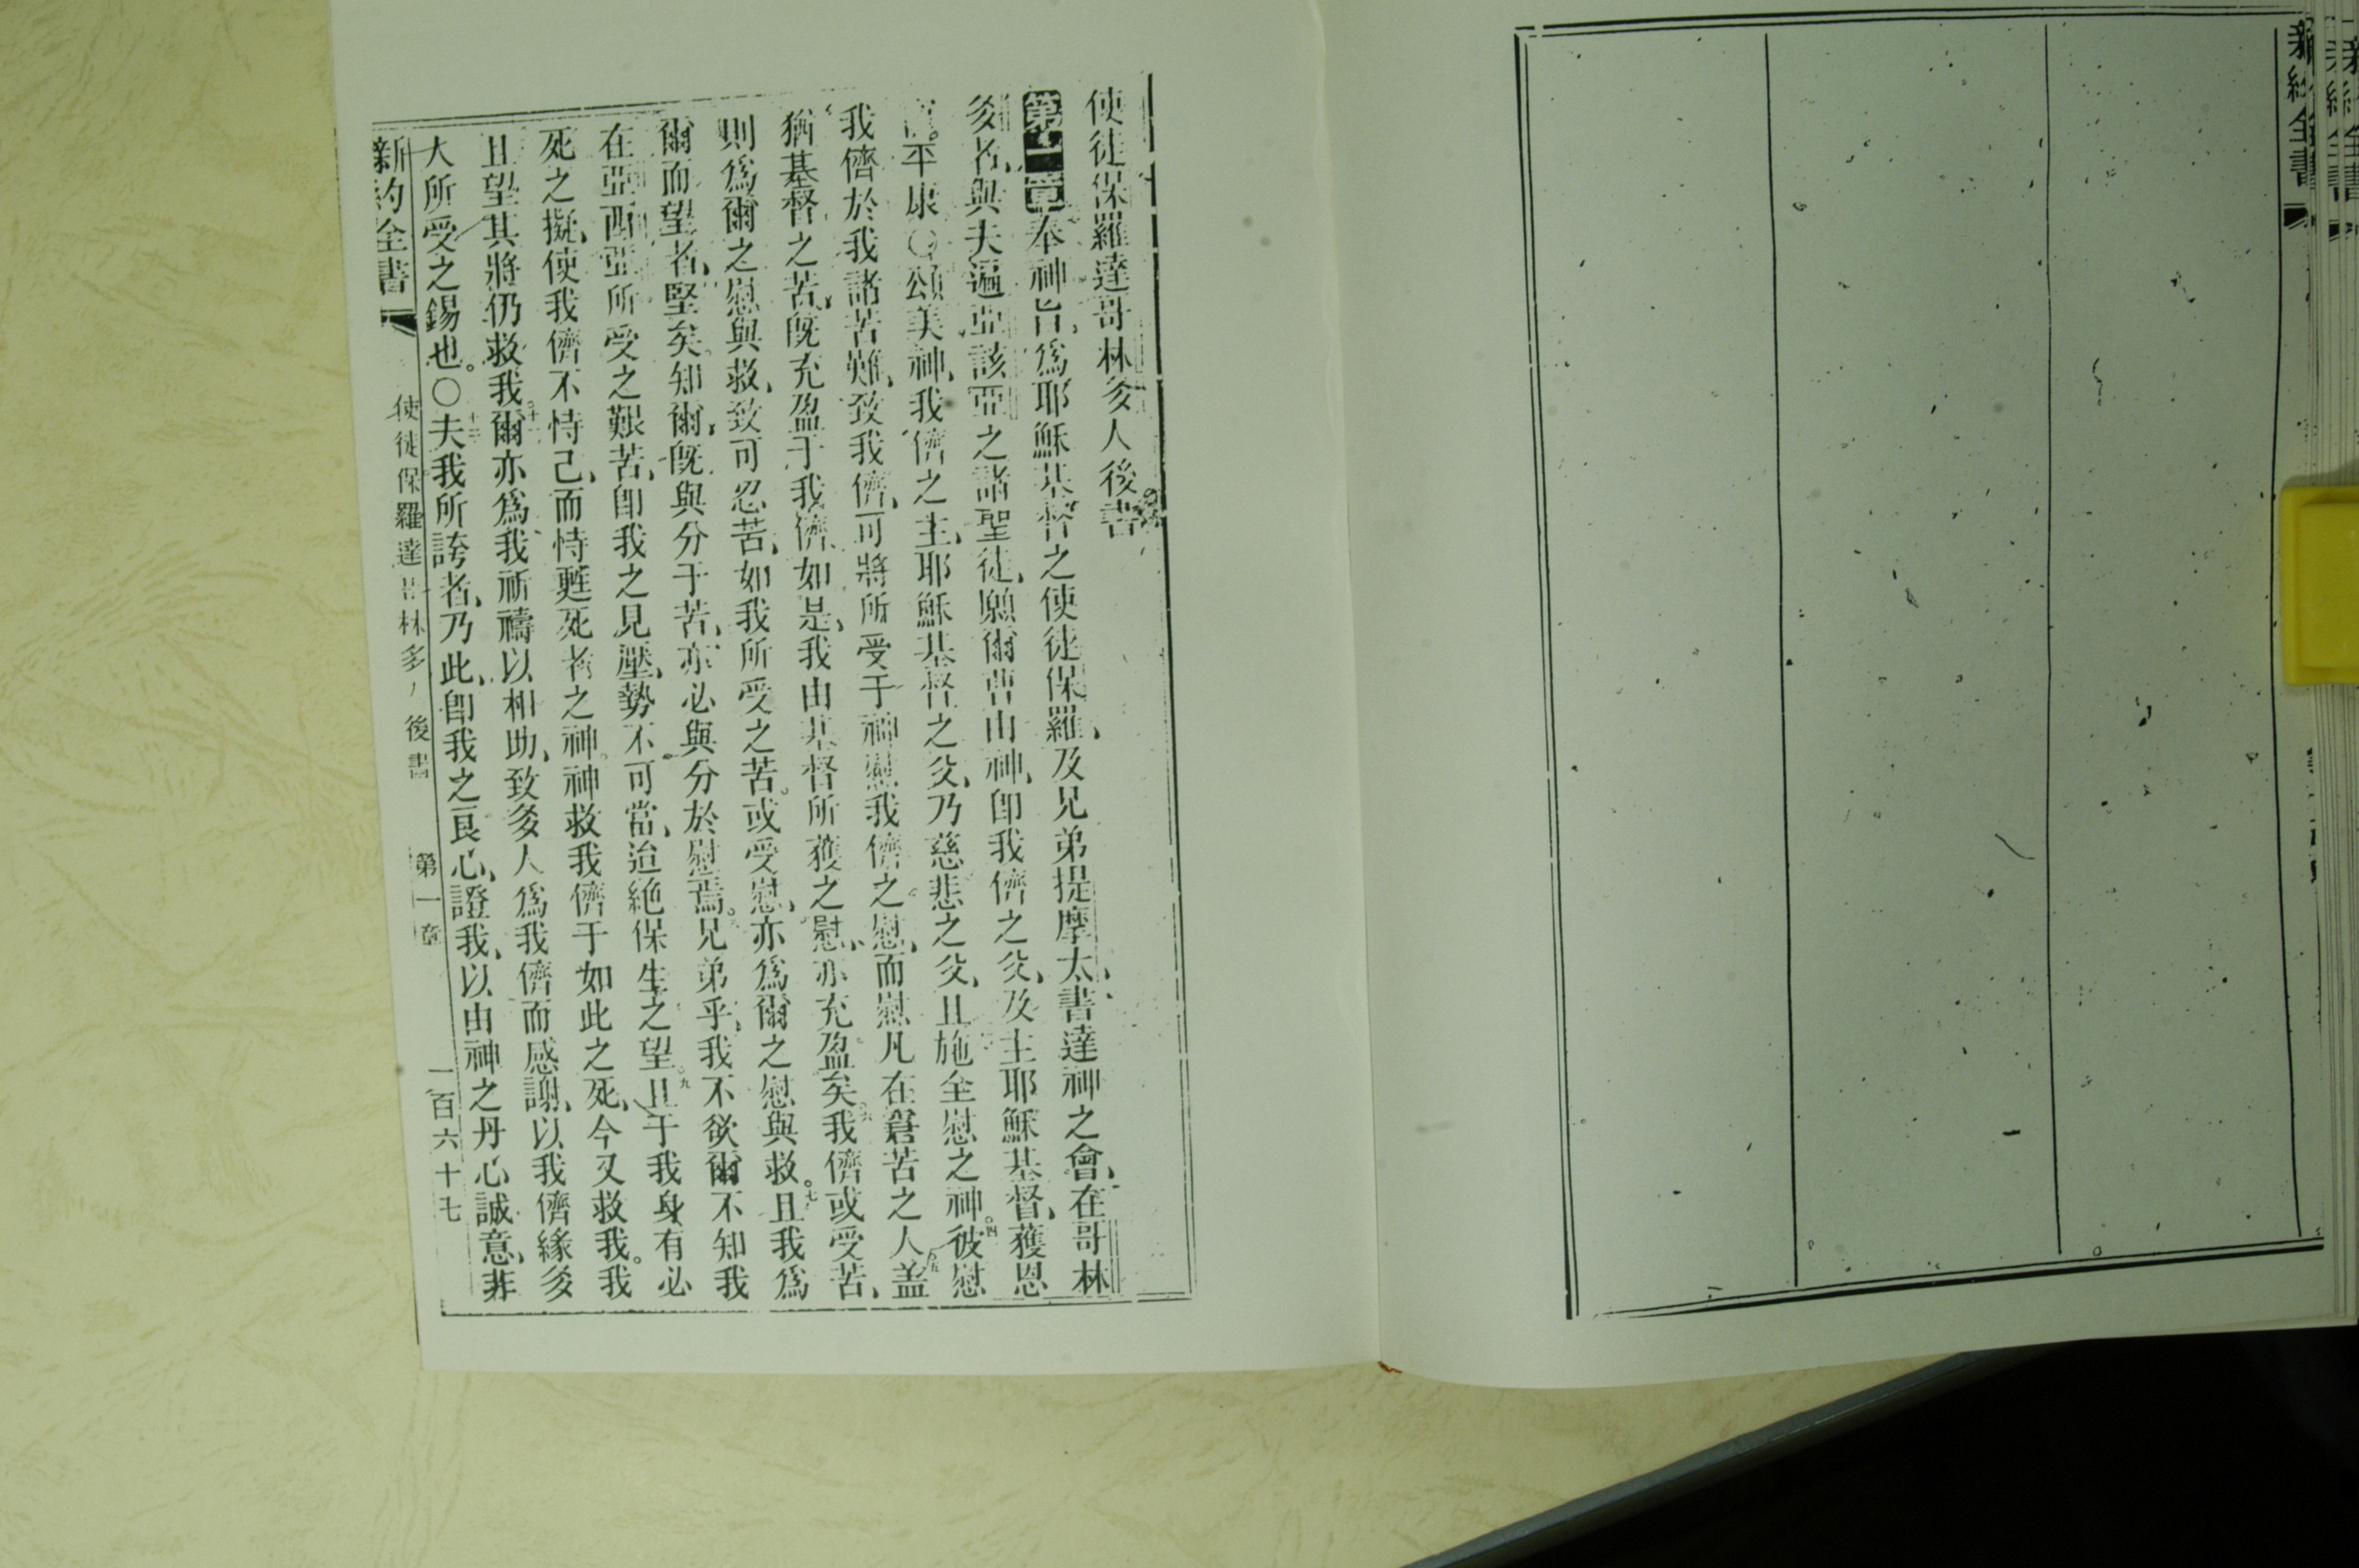 新約全書
使徒保羅達哥林多人後書
第一章奉神旨爲耶穌基督之使徒保羅、及兄弟提摩太、書達神之會、在哥林
多者、與夫遍亞該亞之諸聖徒、願爾曹由神、卽我儕之父、及主耶穌基督、獲恩
平康〇頌美神、我儕之主、耶穌基督之父、乃慈悲之父、且施全慰之神。四彼慰
我儕於我諸苦難、致我儕、可將所受于神慰我儕之慰、而慰凡在窘苦之人。五盖
猶基督之苦、旣充盈于我儕、如是、我由基督所獲之慰、亦充盈矣。六我儕或受苦、
則爲爾之慰與救、致可忍苦、如我所受之苦。或受慰、亦爲爾之慰與救。七且我爲
爾而望者、堅矣。知爾、旣與分于苦、亦必與分於慰焉。兄弟乎、我不欲爾不知我
在亞西亞所受之艱苦、卽我之見壓、勢不可當、迨絶保生之望。九且于我身有必
死之擬、使我儕不恃己、而恃甦死者之神。神救我儕于如此之死、今又救我。我
且望其將仍救我。爾亦爲我祈禱以相助、致多人爲我儕而感謝、以我儕緣多
人所受之錫也。〇夫我所誇者、乃此、卽我之良心、證我、以由神之丹心誠意、非
新約全書 使徒保羅達哥林多人後書 第一章 一百六十七